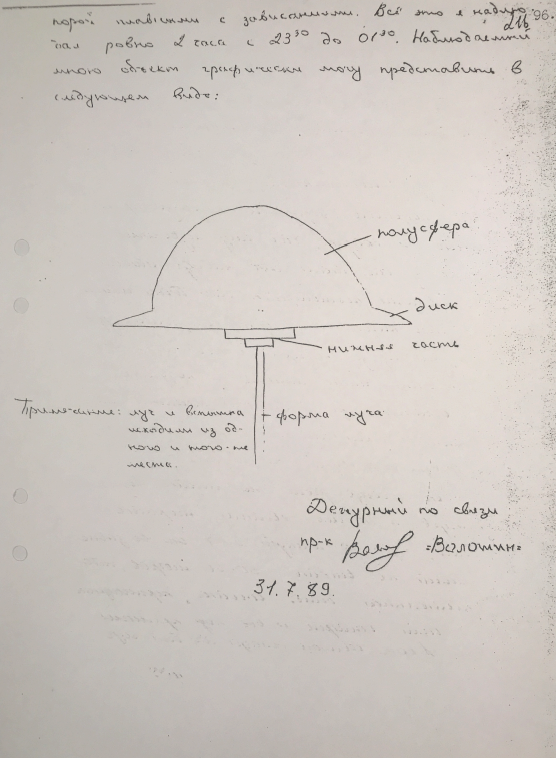 порой плавными с зависаниями. Всё это я наблю-
21б 96.
дал ровно 2 часа с 23³⁰ до 01³⁰. Наблюдаемый
мною объект графически могу представить в
следующем виде:
полусфера
диск
нижняя часть
Примечание: луч и вспышка
исходили из од-
ного и того-же
места.
форма луча
Дежурный по связи
пр-к =Волошин=
31.7.89.